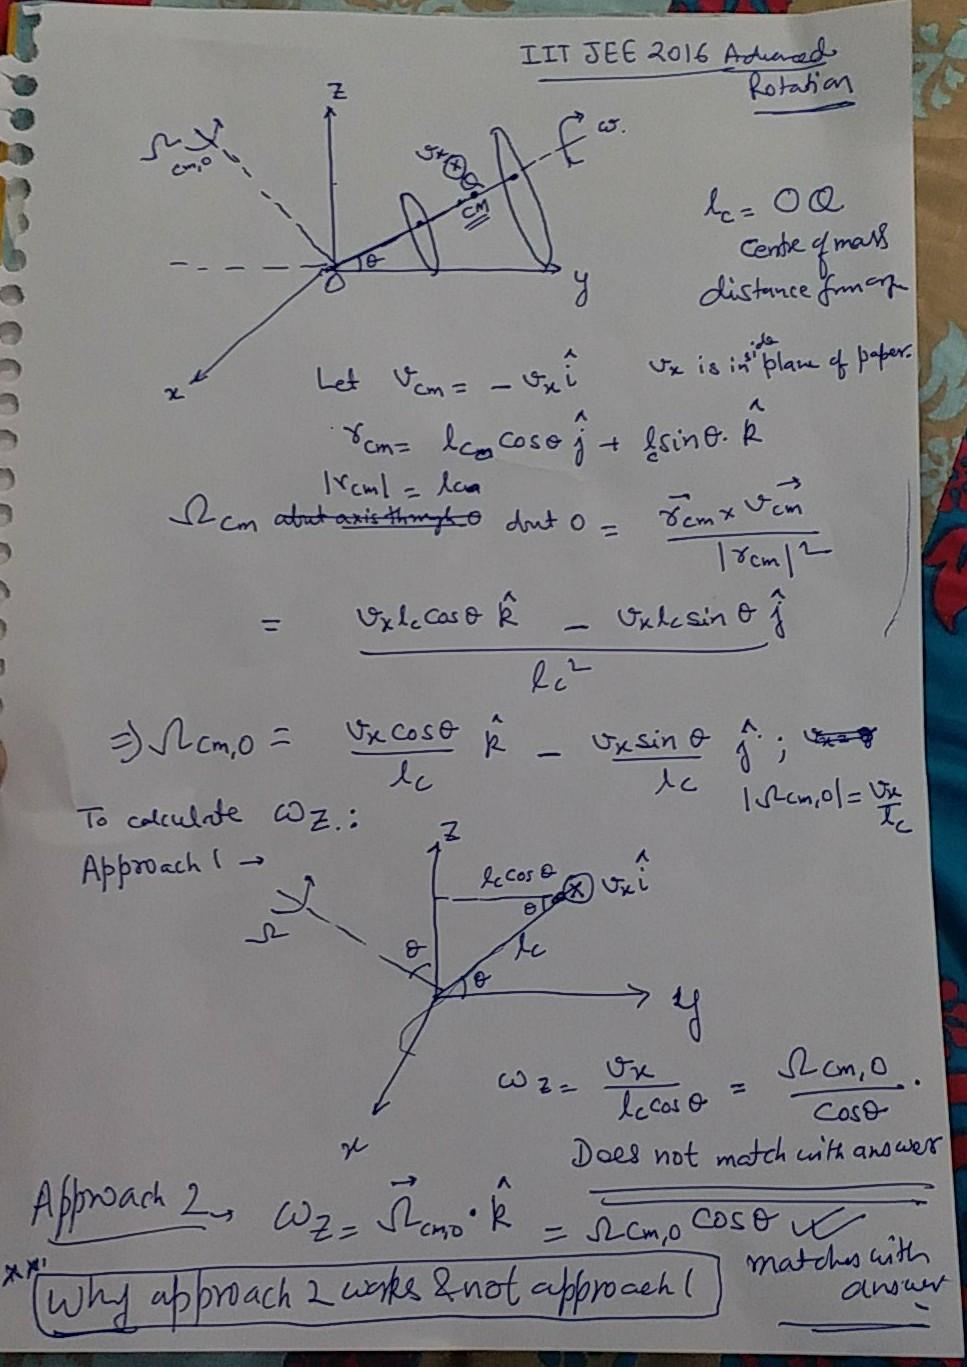 IIT JEE 2016 Advanced
Rotation
z
Ω cm,0
vx ⊗
Q
CM
ω.
θ
O
y
x
lc = OQ
Centre of mass
distance from
Let vcm = - vx î vx is inside plane of paper.
rcm = lcm cosθ ĵ + lc sinθ. k̂
|rcm| = lcm
Ωcm about axis through O abut O = r⃗cm × v⃗cm / |rcm|²
= vx lc cosθ k̂ - vx lc sinθ ĵ / lc²
⇒ Ωcm,0 = vx cosθ / lc k̂ - vx sinθ / lc ĵ ;
|Ωcm,0| = vx / lc
To calculate ωz.:
Approach 1 →
z
lc cosθ ⊗ vx î
θ
Ω
θ
lc
θ
y
x
ωz = vx / lc cosθ = Ωcm,0 / cosθ .
Does not match with answer
Approach 2 → ωz = Ω⃗cm,0 · k̂ = Ωcm,0 cosθ ✓
matches with
answer
Why approach 2 works & not approach 1